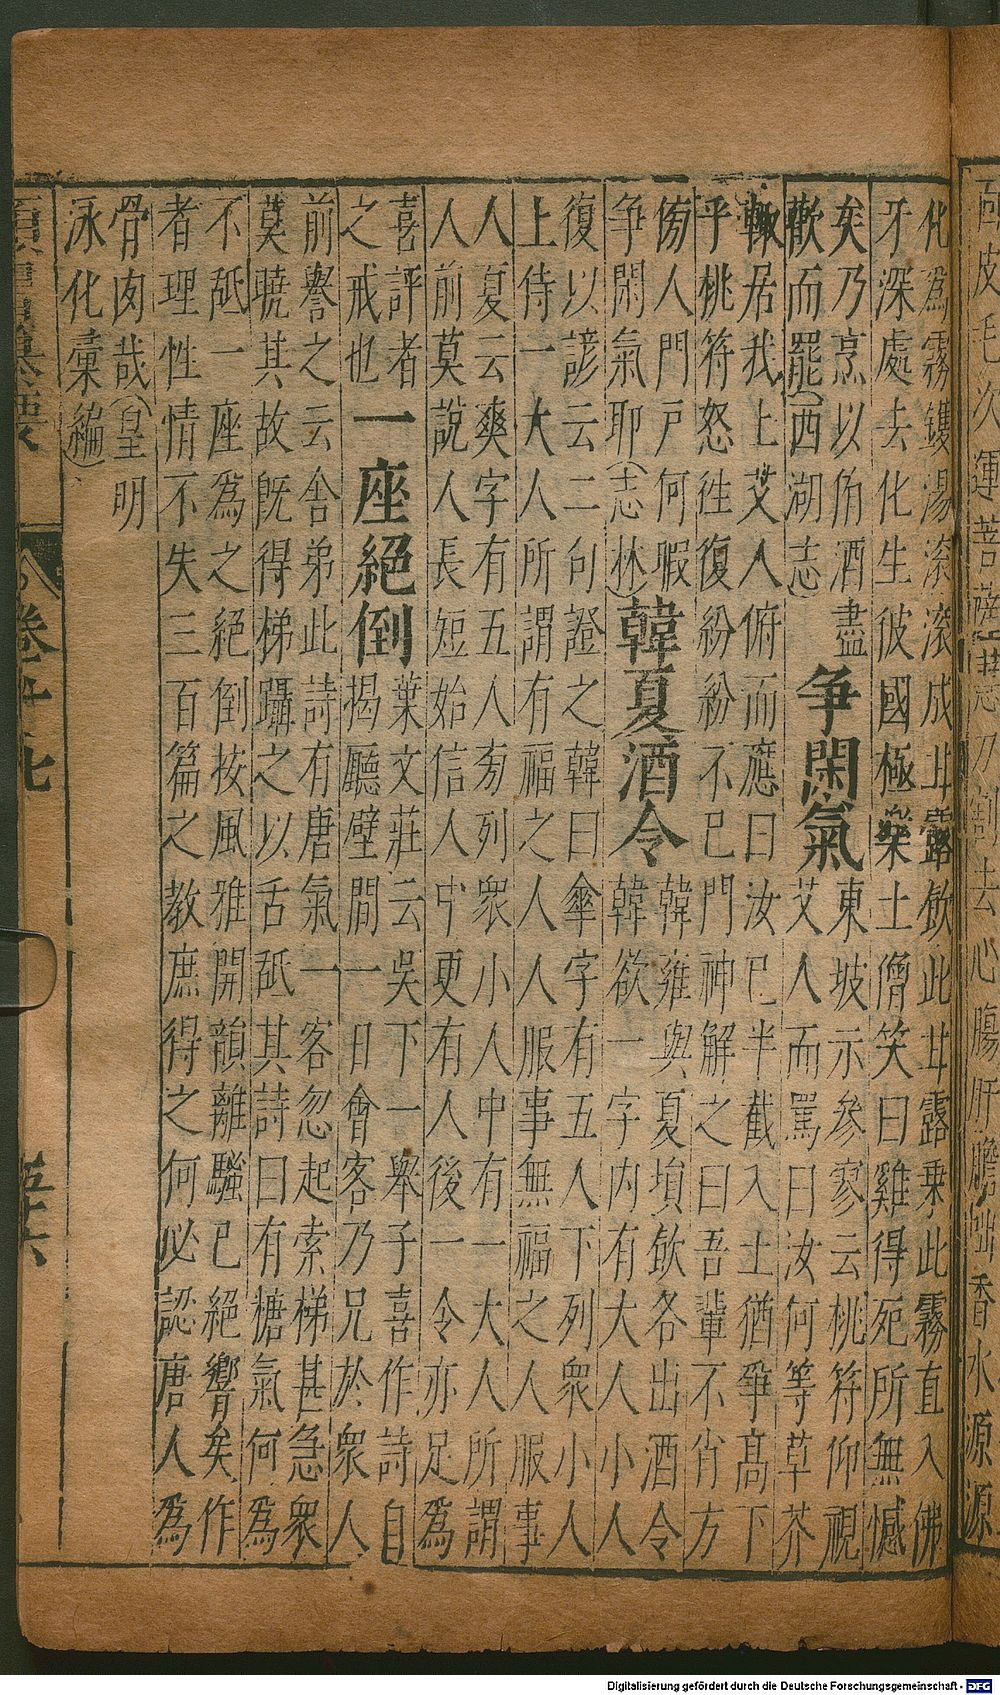 面皮毛次運菩薩刀割去心腸肝膽咄香水源源
化為霧鑊湯滾滾成甘露飲此甘露乘此霧直入佛
牙深處去化生彼國極樂土僧笑曰雞得死所無憾
矣乃烹以侑酒盡
歡而罷(西湖志)
爭閑氣
東坡示參寥云桃符仰視
艾人而罵曰汝何等草芥
輒居我上艾人俯而應曰汝已半截入土猶爭高下
乎桃符怒往復紛紛不已門神解之曰吾輩不肖方
傍人門戶何暇
爭閑氣耶(志林)
韓夏酒令
韓雍與夏塤飲各出酒令
韓欲一字內有大人小人
復以諺云二句證之韓曰傘字有五人下列衆小人
上侍一大人所謂有福之人人服事無福之人人服事
人夏云爽字有五人旁列衆小人中有一大人所謂
人前莫說人長短始信人中更有人後一令亦足為
喜評者
之戒也
一座絕倒
葉文莊云吳下一舉子喜作詩自
揭聽壁間一日會客乃兄於衆人
前譽之云舍弟此詩有唐氣一客忽起索梯甚急衆
莫曉其故既得梯躡之以舌舐其詩曰有糖氣何為
不舐一座為之絕倒按風雅開韻離騷已絕響矣作
者理性情不失三百篇之教庶得之何必認唐人為
骨肉哉(皇明
泳化彙編)
卷廿九
五十六
Digitalisierung gefördert durch die Deutsche Forschungsgemeinschaft - DFG